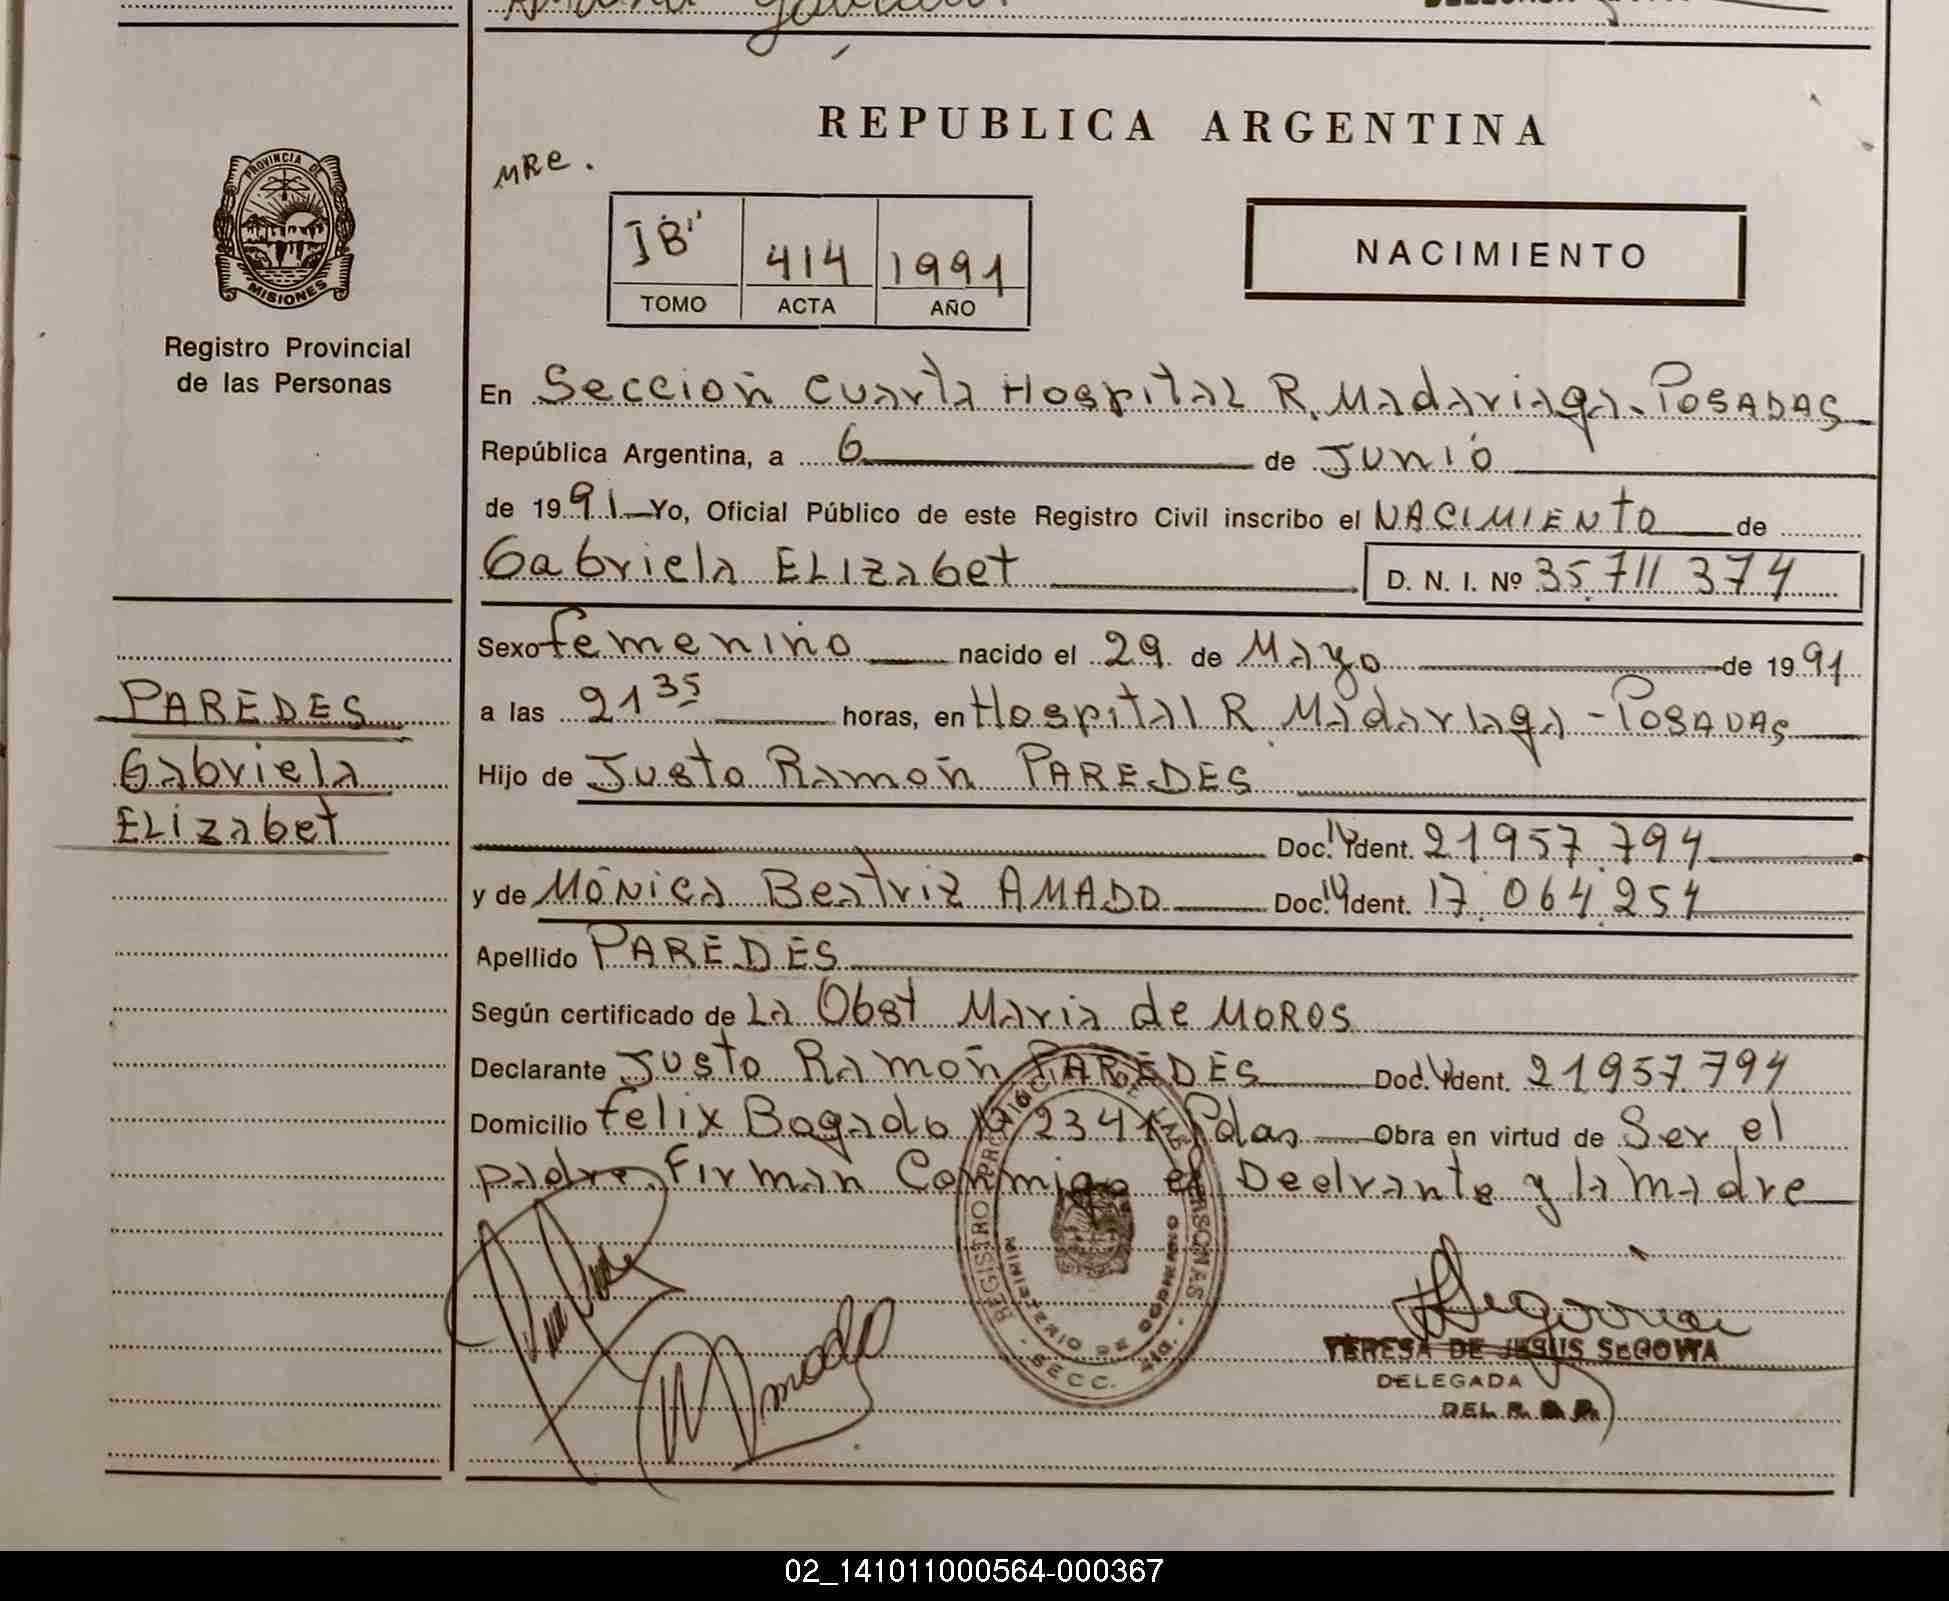 REPUBLICA ARGENTINA
MRe.
PROVINCIA DE
MISIONES
Registro Provincial
de las Personas
414 1991
TOMO ACTA AÑO
NACIMIENTO
En Sección Cuarta Hospital R. Madariaga - POSADAS
República Argentina, a 6 de Junio
de 1991 Yo, Oficial Público de este Registro Civil inscribo el NACIMIENTO de
Gabriela ELIZabet D. N. I. Nº 35.711.374
Sexo femenino nacido el 29 de Mayo de 1991
a las 21 35 horas, en Hospital R Madariaga - POSADAS
Hijo de Justo Ramón PAREDES
Doc. Ident. 21957.794
y de Mónica Beatriz AMADO Doc. Ident. 17.064.254
Apellido PAREDES
Según certificado de La Obst Maria de MOROS
Declarante Justo Ramón PAREDES Doc. Ident. 21957.794
Domicilio felix Bogado Nº 2341 Pdas Obra en virtud de Ser el
padre. Firman Conmigo el Declrante y la madre
PAREDES
Gabriela
ELizabet
REGISTRO PROVINCIAL DE LAS PERSONAS
MINISTERIO DE GOBIERNO
SECC. 4ta.
M Amado
TERESA DE JESUS SEGOVIA
DELEGADA
DEL R. P. P.
02_141011000564-000367